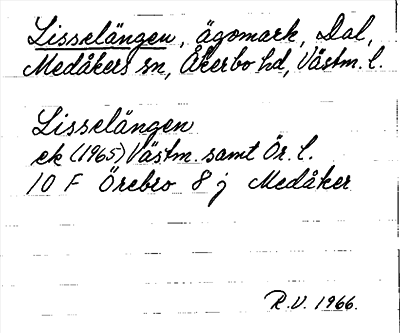 Lisselängen, ägomark, Dal,
Medåkers sn, Åkerbo hd, Västm. l.
Lisselängen
ek (1965) Västm. samt Ör. l.
10 F Örebro 8 j Medåker
R.V. 1966.